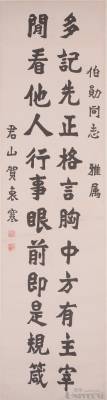 伯勛同志 雅屬
多記先正格言胸中方有主宰
閒看他人行事眼前即是規箴
君山賀袁寒